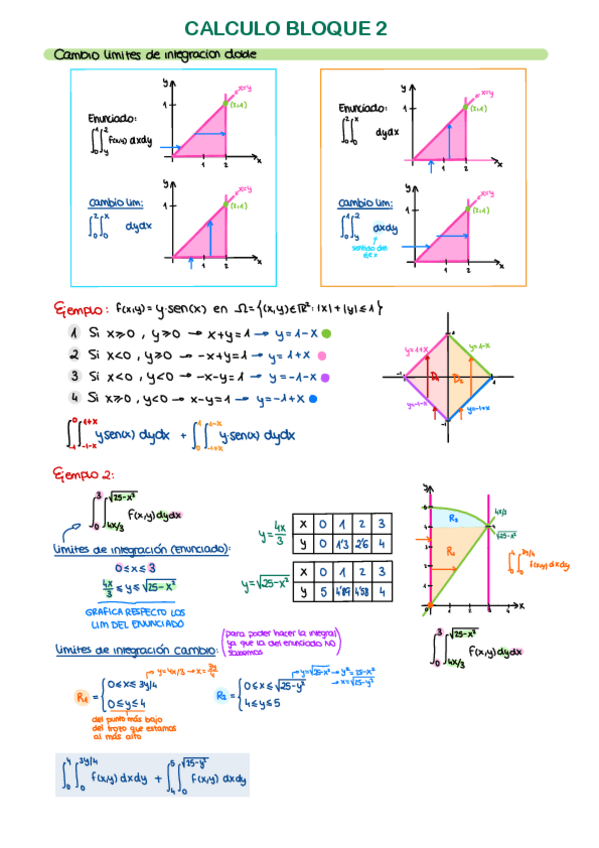 CALCULO BLOQUE 2
Cambio limites de integracion doble
Enunciado:
∫₀¹∫ᵧ² f(x,y) dxdy
y
1
x=y
(2,1)
1 2 x
Cambio lim:
∫₀²∫₀ˣ dydx
y
1
x=y
(2,1)
1 2 x
Enunciado:
∫₀²∫₀ˣ dydx
y
1
x=y
(2,1)
1 2 x
Cambio lim:
∫₀¹∫ᵧ² dxdy
sentido del eje x
y
1
x=y
(2,1)
1 2 x
Ejemplo: f(x,y)=y·sen(x) en Ω={(x,y)∈ℝ²: |x|+|y|≤1}
1 Si x≥0, y≥0 → x+y=1 → y=1-x
2 Si x<0, y≥0 → -x+y=1 → y=1+x
3 Si x<0, y<0 → -x-y=1 → y=-1-x
4 Si x≥0, y<0 → x-y=1 → y=-1+x
y=1+x
y=1-x
D₁
D₂
y=-1-x
y=-1+x
∫₋₁⁰∫₋₁₋ₓ¹⁺ˣ y sen(x) dydx + ∫₀¹∫₋₁₊ₓ¹⁻ˣ y·sen(x) dydx
Ejemplo 2:
∫₀³∫_{4x/3}^{√25-x²} f(x,y) dydx
Limites de integración (Enunciado):
0≤x≤3
4x/3 ≤ y ≤ √25-x²
GRAFICA RESPECTO LOS
LIM DEL ENUNCIADO
y=4x/3
x 0 1 2 3
y 0 1'3 2'6 4
y=√25-x²
x 0 1 2 3
y 5 4'89 4'58 4
y
R₂
R₁
4x/3
√25-x²
x
∫₀⁴∫₀^{3y/4} f(x,y) dxdy
∫₀³∫_{4x/3}^{√25-x²} f(x,y) dydx
Limites de integración cambio:
(para poder hacer la integral
ya que la del enunciado NO
sabemos)
y=4x/3 → x=3y/4
R₁ = { 0≤x≤3y/4
0≤y≤4
del punto más bajo
del trozo que estamos
al más alto
y=√25-x² → y²=25-x²
→ x=√25-y²
R₂ = { 0≤x≤√25-y²
4≤y≤5
∫₀⁴∫₀^{3y/4} f(x,y) dxdy + ∫₄⁵∫₀^{√25-y²} f(x,y) dxdy